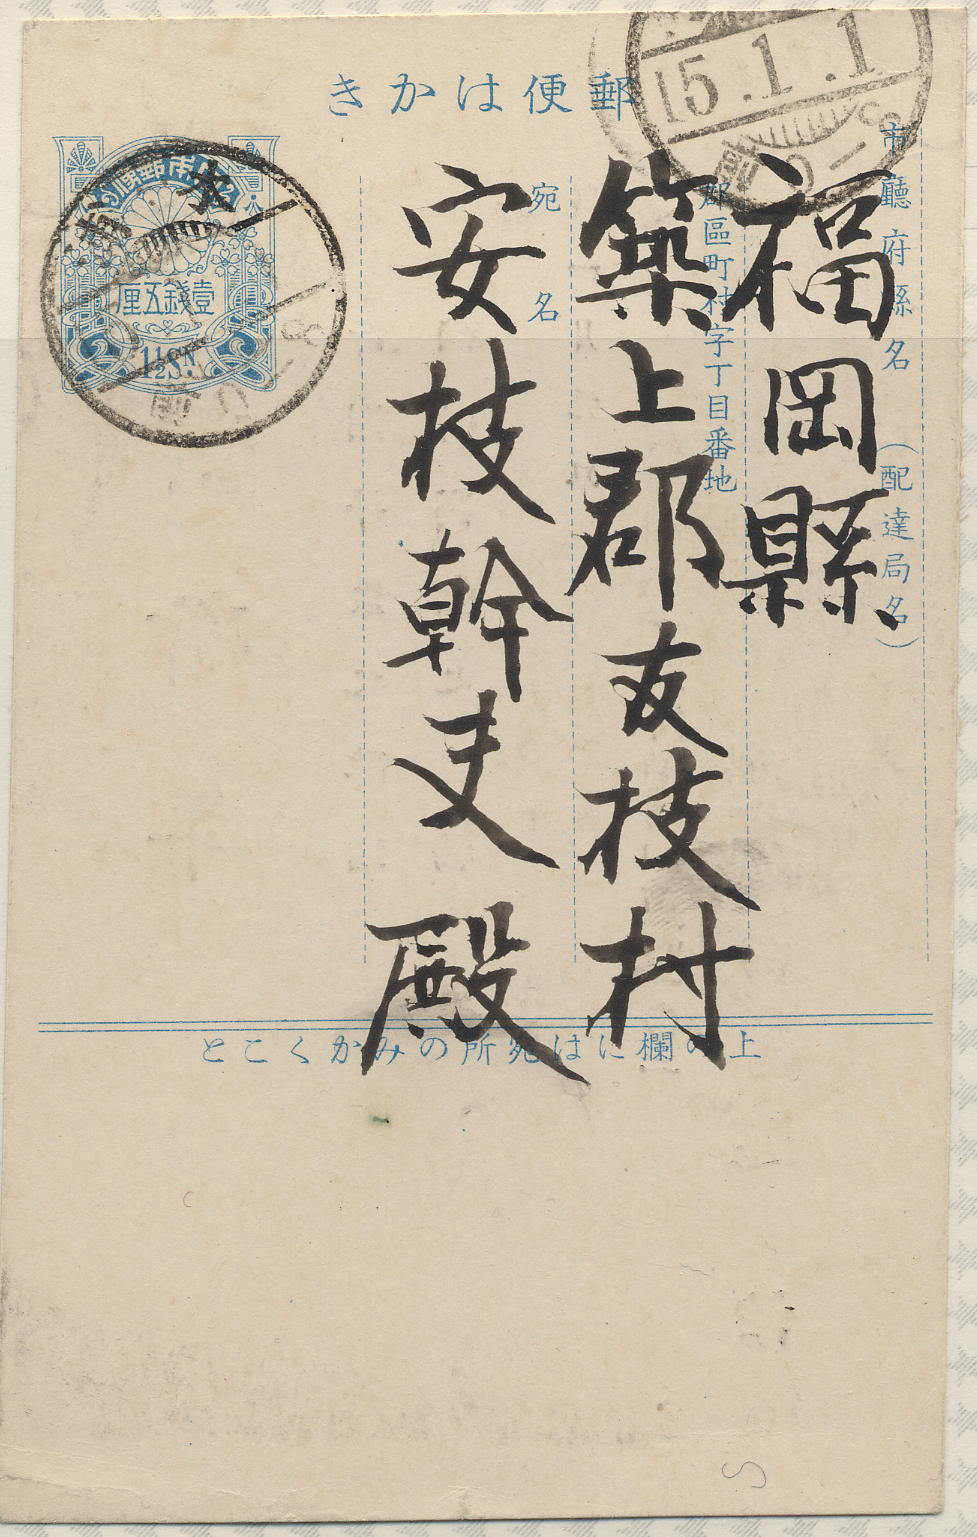 郵便はかき
15.1.1
市廳府縣名（配達局名）
福岡縣
郡區町村字丁目番地
築上郡友枝村
宛名
安枝幹夫殿
壹錢五厘
1½Sn.
上の欄には宛所のみかくこと